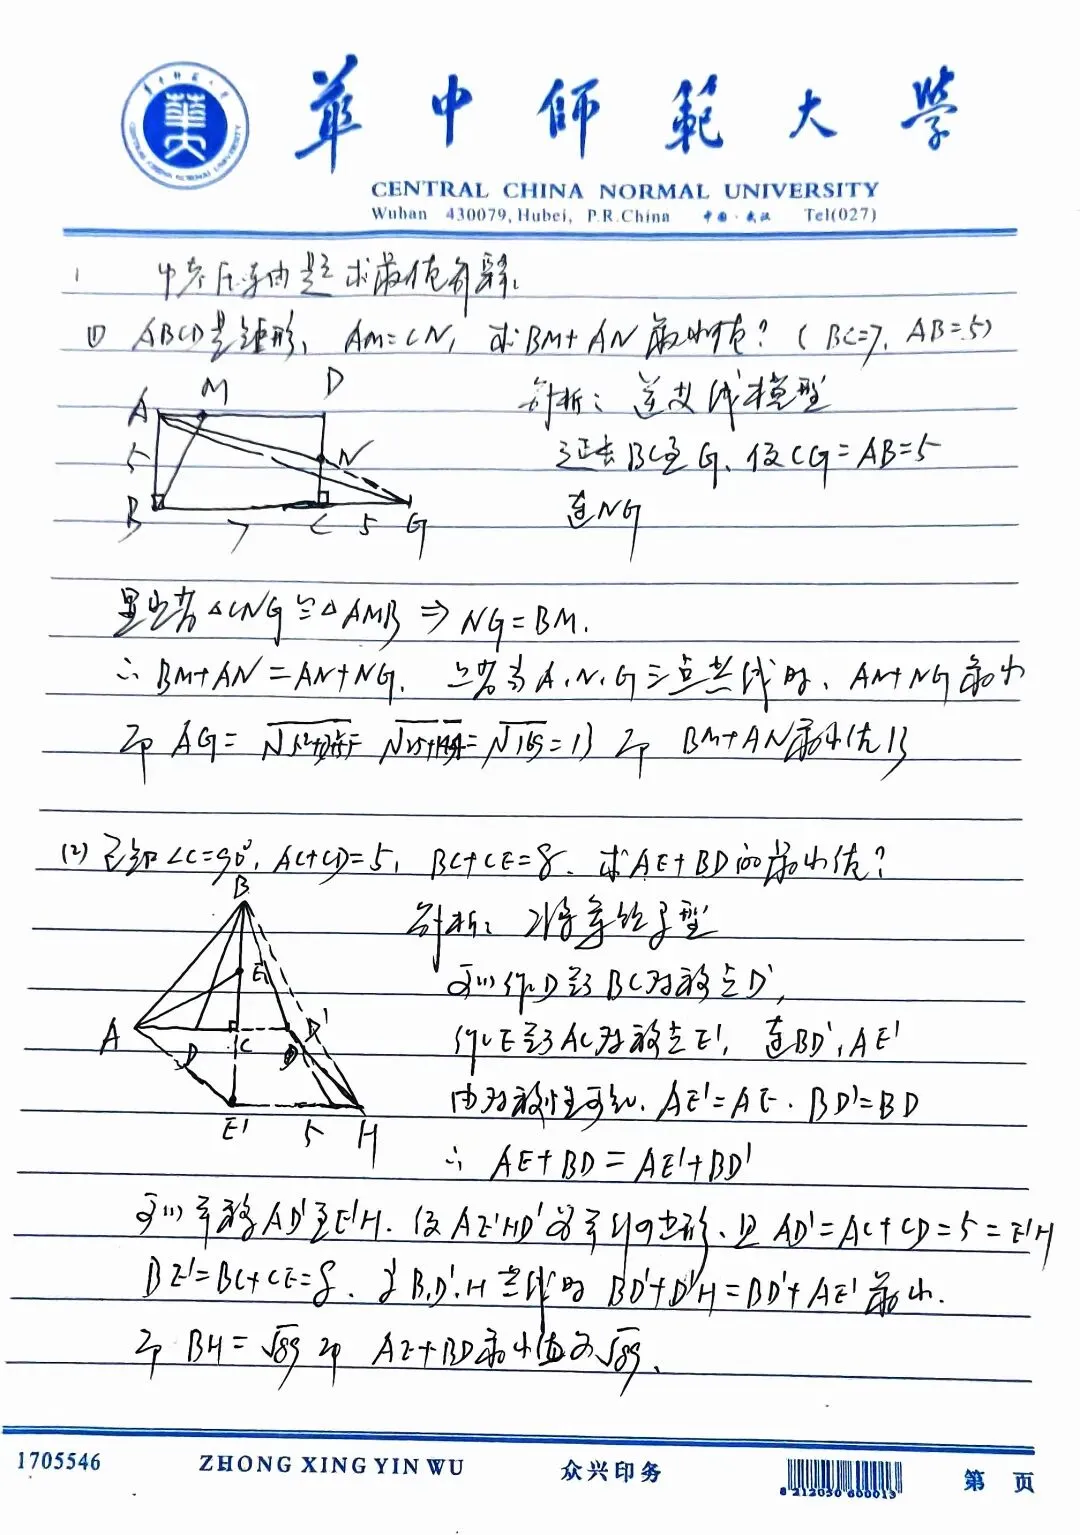 華中師範大學
CENTRAL CHINA NORMAL UNIVERSITY
Wuhan 430079, Hubei, P.R.China 中国·武汉 Tel(027)
1 中考压轴题求最值剖释.
(1) ABCD是矩形, AM=CN, 求BM+AN最小值? (BC=7, AB=5)
A M D
剖析: 逆 线模型
5 N
延长BC至G, 使CG=AB=5
B 7 C 5 G
连NG
易 △CNG≌△AMB ⇒ NG=BM.
∴ BM+AN=AN+NG. 当A、N、G三点共线时、AN+NG最小
即 AG= = =√169=13 即 BM+AN最小值13
(2) 已知∠C=90°, AC+CD=5, BC+CE=8. 求AE+BD的最小值?
B
剖析: 将军饮马型
E
可以作D关于BC对称点D',
A D C D'
作E关于AC对称点E', 连BD', AE'
由对称性可知, AE'=AE. BD'=BD
E' 5 H
∴ AE+BD=AE'+BD'
可以平移AD'至E'H. 使AE'HD'为平行四边形、且AD'=AC+CD=5=E'H
BE'=BC+CE=8. 当B,D',H共线时 BD'+D'H=BD'+AE'最小.
即 BH=√89 即 AE+BD最小值为√89.
1705546 ZHONG XING YIN WU 众兴印务 8 212030 600013 第 页